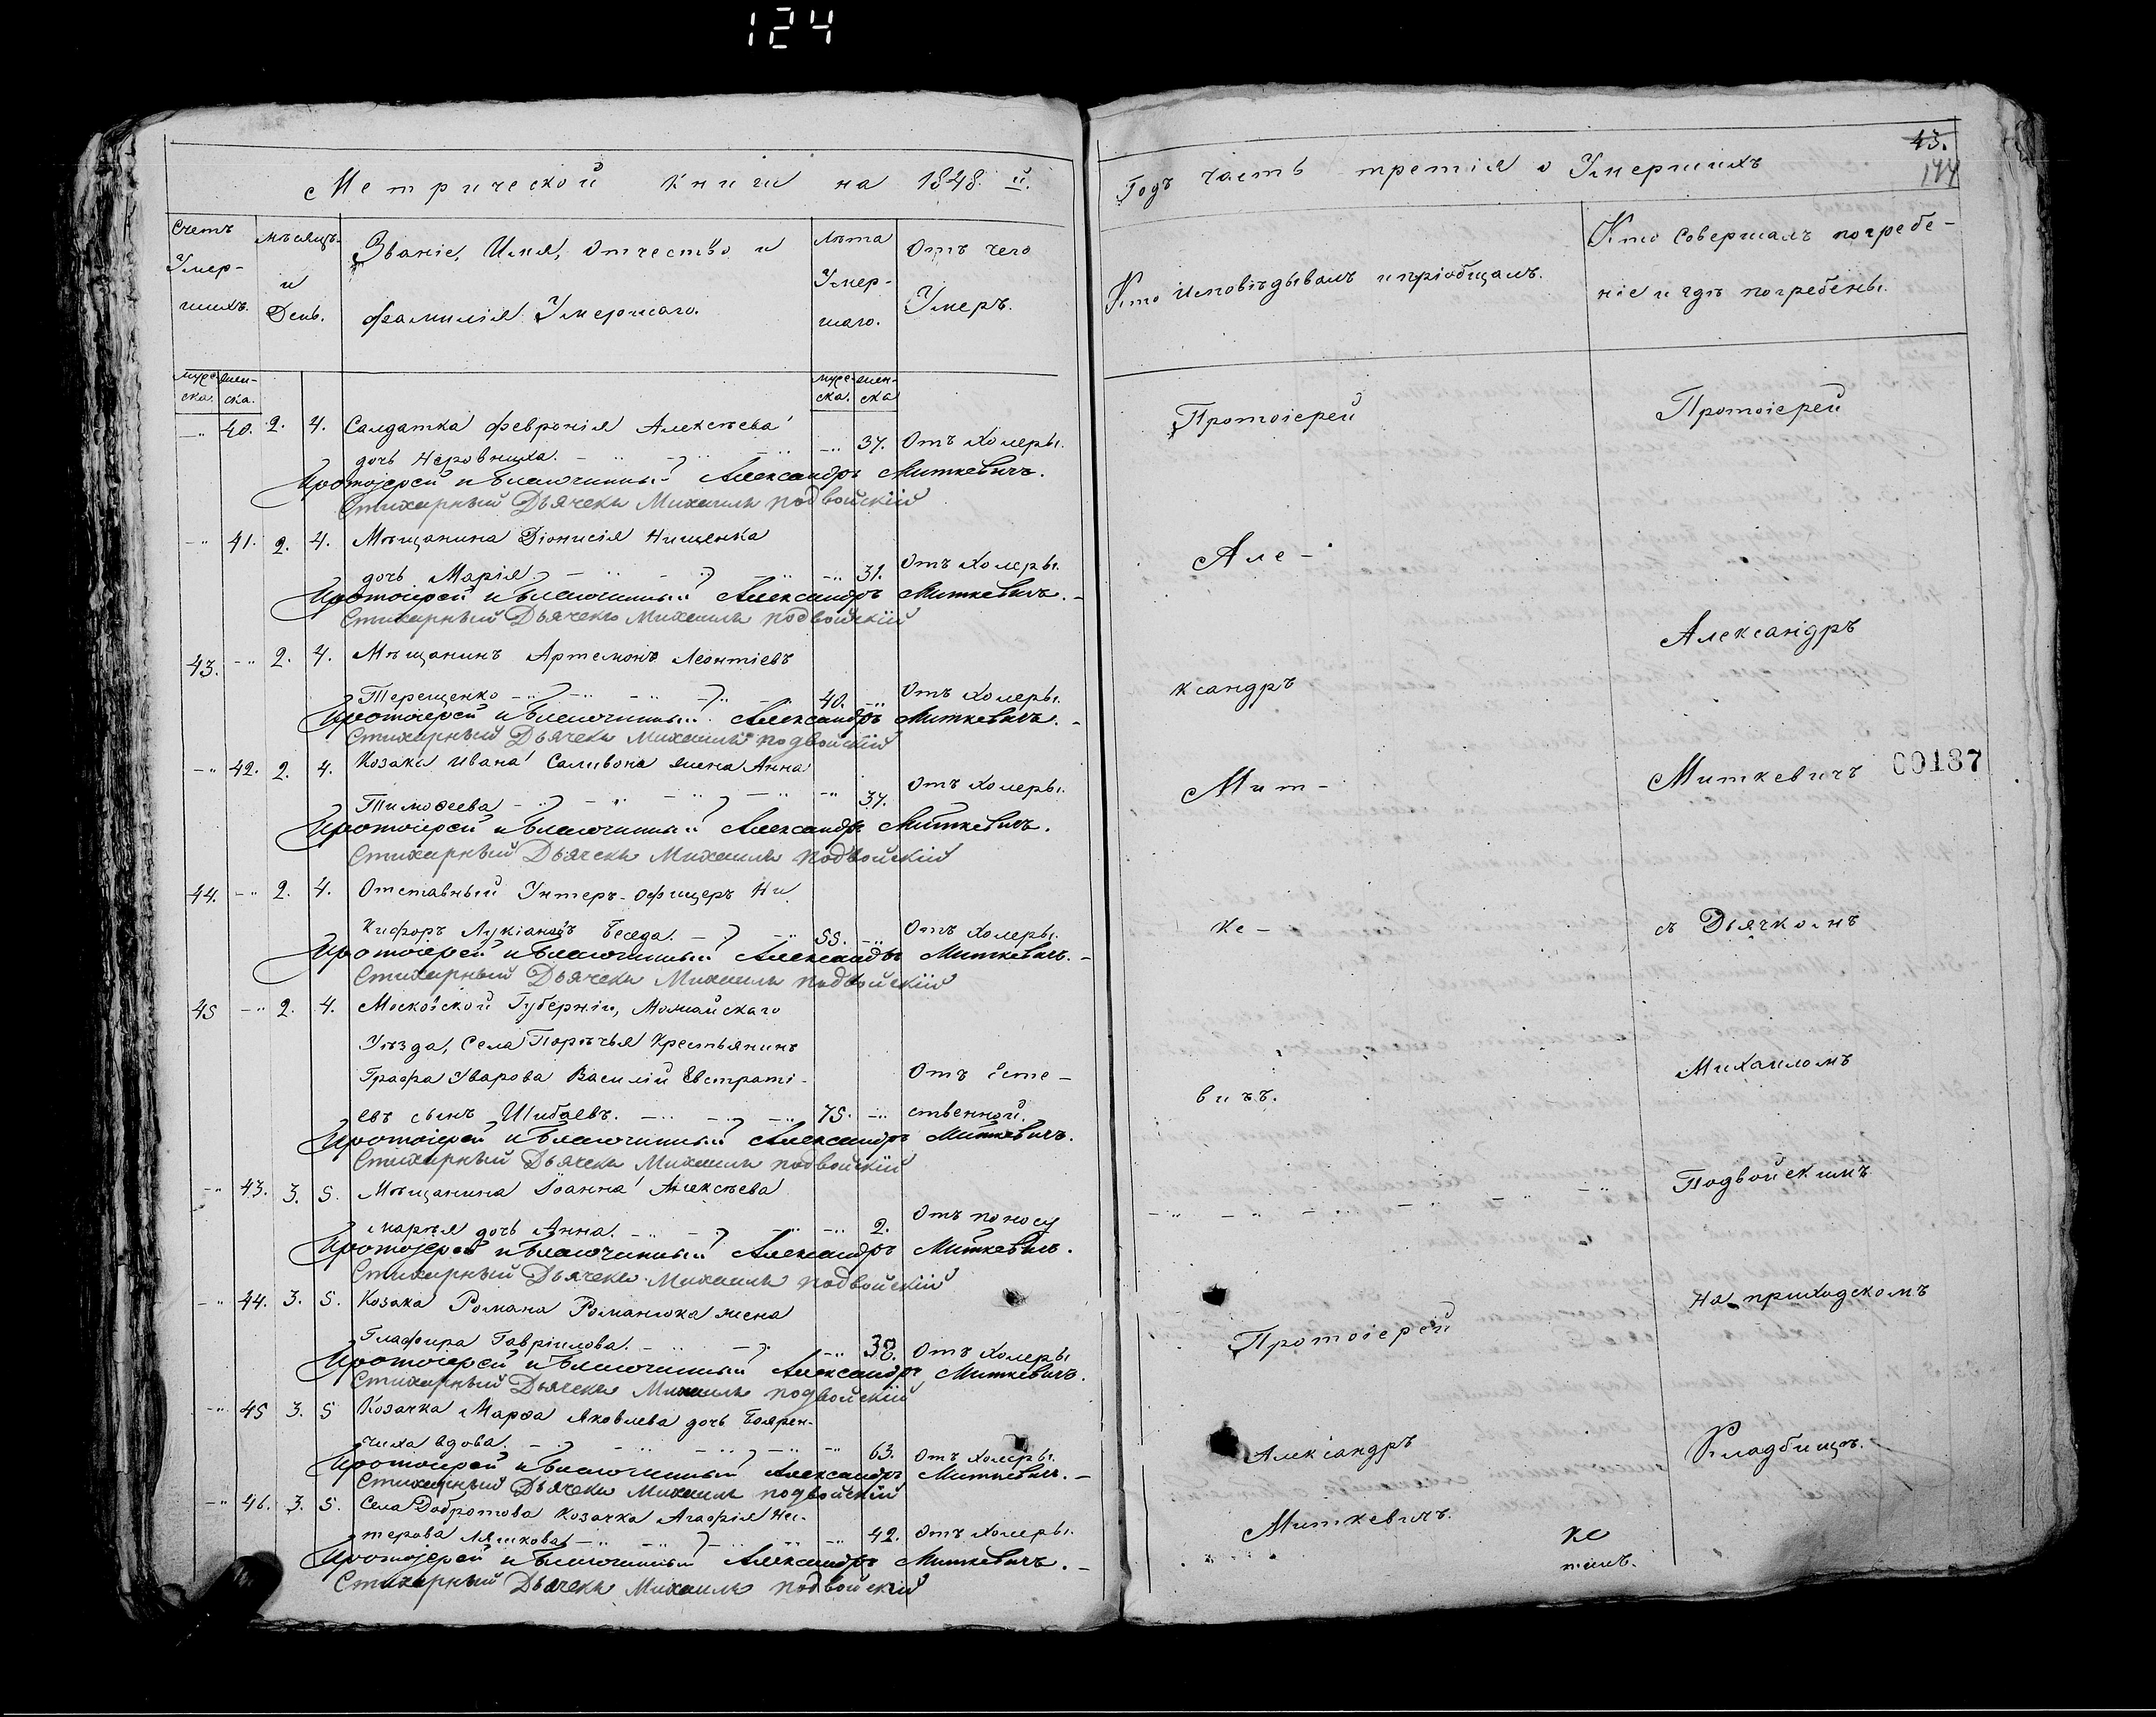 124
Метрической книги на 1848 й.
Счетъ Умер- шихъ.
Мѣсяцъ и День.
Званіе, Имя, Отчество и
фамилія Умершаго.
Лѣта Умер- шаго.
Отъ чего Умеръ.
мужес- ска. жен- ска.
мужес- ска. жен- ска
-" 40. 2. 4. Салдатка Февронія Алексѣева
дочь -" 37. Отъ Холеры.
Протоіерей и Благочинный Александръ Миткевичъ.
Стихарный Дьячекъ Михаилъ Подвойскій
-" 41. 2. 4. Мѣщанина Діонисія Нищенка
дочь Марія -" 31. Отъ Холеры.
Протоіерей и Благочинный Александръ Миткевичъ.
Стихарный Дьячекъ Михаилъ Подвойскій
43. -" 2. 4. Мѣщанинъ Артемонъ Леонтіевъ
Терещенко 40. -" Отъ Холеры.
Протоіерей и Благочинный Александръ Миткевичъ.
Стихарный Дьячекъ Михаилъ Подвойскій
-" 42. 2. 4. Козака Ивана Саливона жена Анна
Тимофеева -" 37. Отъ Холеры.
Протоіерей и Благочинный Александръ Миткевичъ.
Стихарный Дьячекъ Михаилъ Подвойскій
44. -" 2. 4. Отставный Унтеръ-Офицеръ Ни
кифоръ Лукіановъ Беседа. 55. -" Отъ Холеры.
Протоіерей и Благочинный Александръ Миткевичъ.
Стихарный Дьячекъ Михаилъ Подвойскій
45 -" 2. 4. Московской Губерніи, Можайскаго
Уѣзда, Села Порѣчья Крестьянинъ
Графа Уварова Василій Евстраті- Отъ Есте-
евъ сынъ Шибаевъ. 75. -" ственной.
Протоіерей и Благочинный Александръ Миткевичъ.
Стихарный Дьячекъ Михаилъ Подвойскій
-" 43. 3. 5. Мѣщанина Іоанна Алексѣева
дочь Анна. -" 2. Отъ поносу
Протоіерей и Благочинный Александръ Миткевичъ.
Стихарный Дьячекъ Михаилъ Подвойскій
-" 44. 3. 5. Козака Романа Романюка жена
Глафира Гавріилова. -" 38. Отъ Холеры
Протоіерей и Благочинный Александръ Миткевичъ.
Стихарный Дьячекъ Михаилъ Подвойскій
-" 45 3. 5 Козачка Марфа Яковлева дочь Боярен-
чиха вдова. -" 63. Отъ Холеры.
Протоіерей и Благочинный Александръ Миткевичъ.
Стихарный Дьячекъ Михаилъ Подвойскій
-" 46. 3. 5. Села Добротова Козачка Агафія Не-
терова -" 42. Отъ Холеры.
Протоіерей и Благочинный Александръ Миткевичъ.
Стихарный Дьячекъ Михаилъ Подвойскій
43.
144
Годъ часть третія о Умершихъ
Кто Исповѣдывалъ и пріобщалъ.
Кто Совершалъ погребе-
ніе и гдѣ погребены.
Протоіерей
Але-
ксандръ
Мит-
ке-
вичъ.
Протоіерей
Александръ
Миткевичъ.
Протоіерей
Александръ
Миткевичъ
00187
съ Дьячкомъ
Михаиломъ
Подвойскимъ
На приходскомъ
Кладбищѣ.